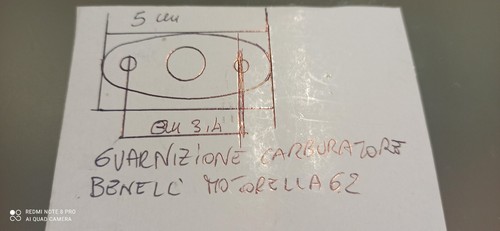 5 cm
cm 3,4
GUARNIZIONE CARBURATORE
BENELLI MOTORELLA G2
REDMI NOTE 8 PRO
AI QUAD CAMERA